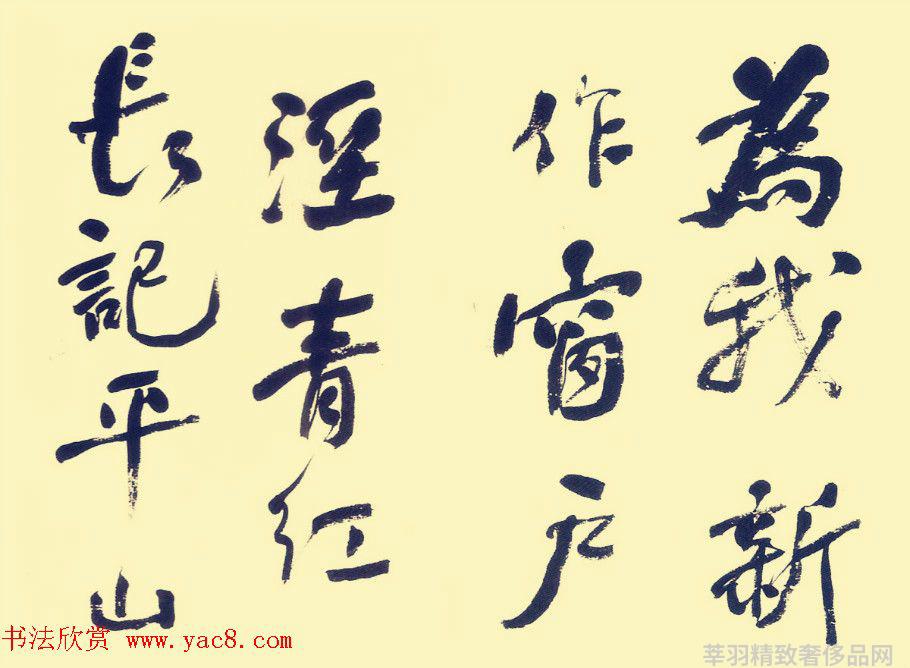 為我新
作窗戶
溼青紅
長記平山
书法欣赏 www.yac8.com
莘羽精致奢侈品网